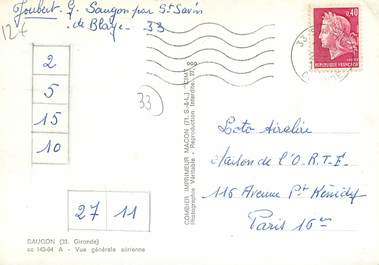 Joubert. G. Saugon par St Savin
de Blaye - 33
12+
0,40
REPUBLIQUE FRANÇAISE
33
2
5
15
10
33
27 11
COMBIER IMPRIMEUR MACON (71. S.-&-L.)
Photographie Véritable - Reproduction Interdite
Loto Airelire
Maison de l'O.R.T.F.
116 Avenue Pt Kennedy
Paris 16e
SAUGON (33. Gironde)
cc 143-64 A - Vue générale aérienne